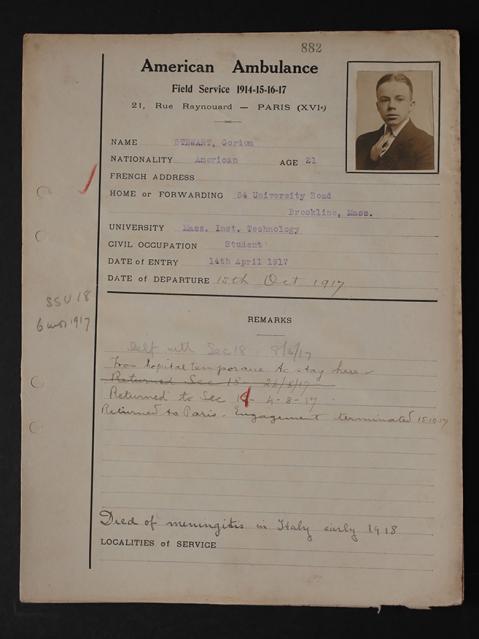 882
American Ambulance
Field Service 1914-15-16-17
21, Rue Raynouard — PARIS (XVIe)
NAME STEWART, Gorium
NATIONALITY American AGE 21
FRENCH ADDRESS
HOME or FORWARDING 84 University Road
Brookline, Mass.
UNIVERSITY Mass. Inst. Technology
CIVIL OCCUPATION Student
DATE of ENTRY 14th April 1917
DATE of DEPARTURE 15th Oct 1917
SSU 18
6 mos 1917
REMARKS
Left with Sec 18 8/6/17
From hospital temporaire to stay here
Returned Sec 18 - 26/5/17
Returned to Sec 1 - 4-8-17
Returned to Paris - Engagement terminated 15.10.17
Died of meningitis in Italy early 1918
LOCALITIES of SERVICE